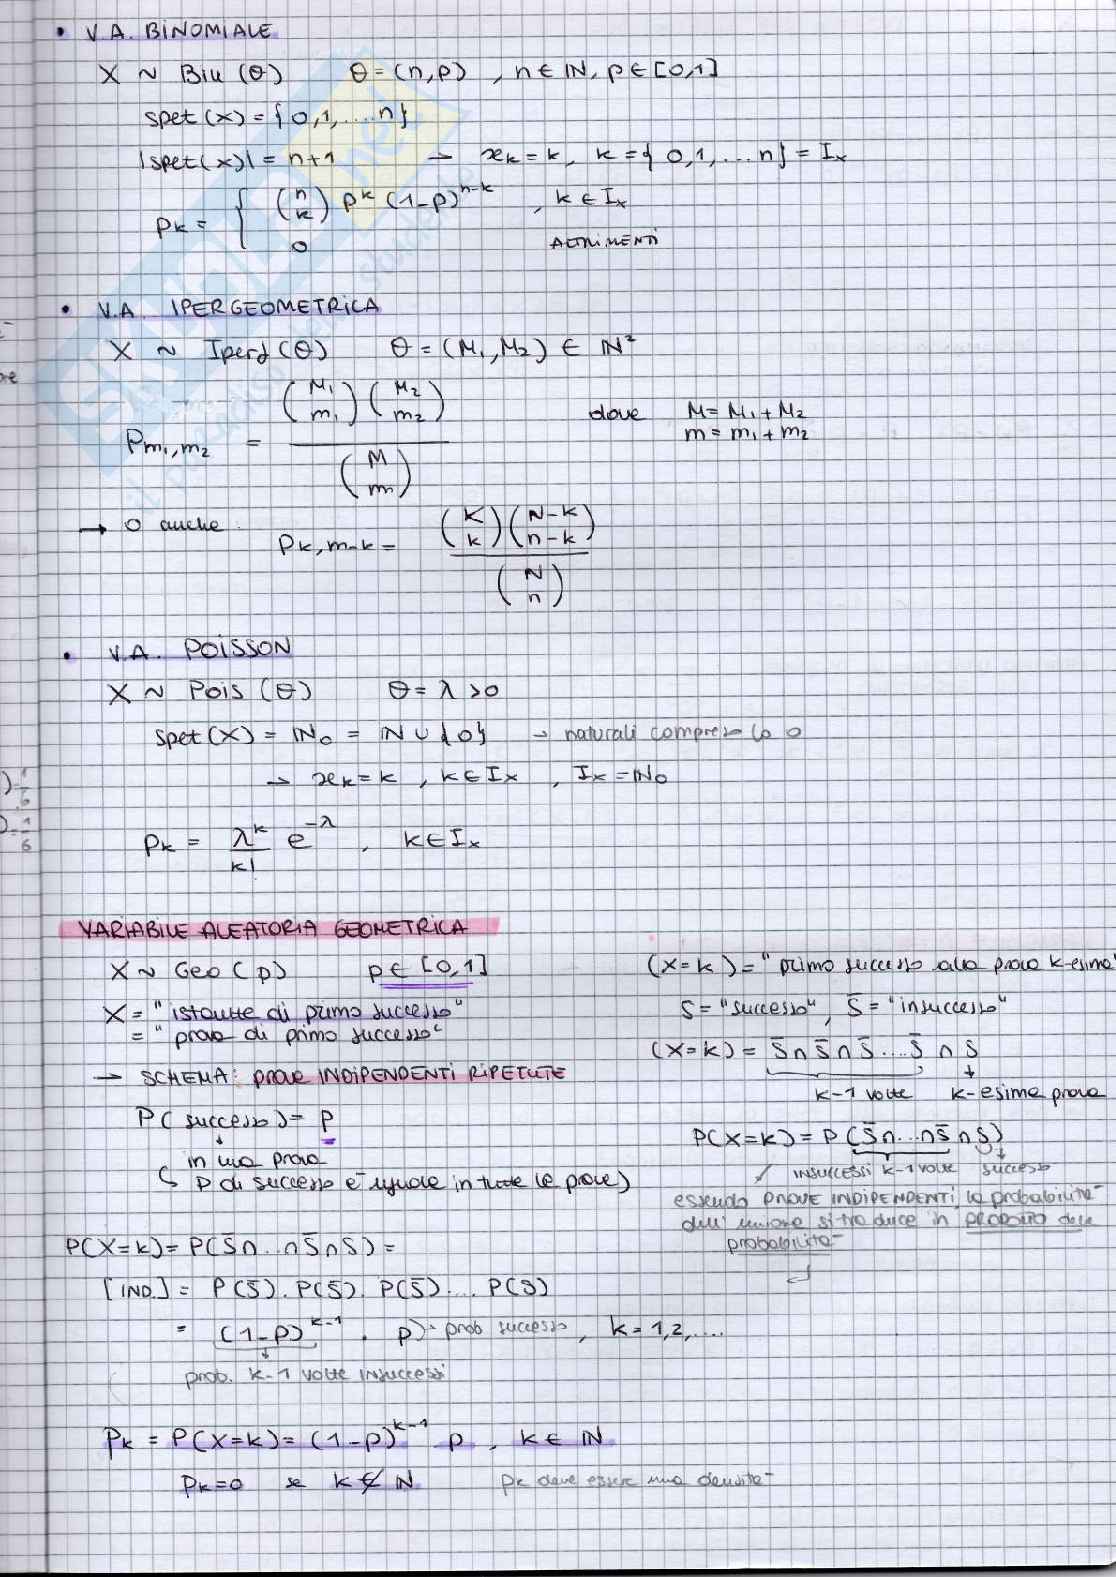 • V.A. BINOMIALE
X ~ Bin (θ) θ = (n,p) , n ∈ ℕ, p ∈ [0,1]
spet(x) = { 0,1,....n}
|spet(x)| = n+1 → xₖ = k, k = { 0,1,...n} = Iₓ
pₖ = { (n k) pᵏ (1-p)ⁿ⁻ᵏ , k ∈ Iₓ
0 ALTRIMENTI
• V.A. IPERGEOMETRICA
X ~ Iperg (θ) θ = (M₁,M₂) ∈ ℕ²
Pm₁,m₂ = (M₁ m₁) (M₂ m₂) / (M m) dove M = M₁ + M₂
m = m₁ + m₂
→ O anche
Pk,m-k = (K k) (N-k n-k) / (N n)
• V.A. POISSON
X ~ Pois (θ) θ = λ >0
spet(X) = ℕ₀ = ℕ ∪ {0} → naturali compreso lo 0
→ xₖ = k , k ∈ Iₓ , Iₓ = ℕ₀
pₖ = λᵏ/k! e^-λ , k ∈ Iₓ
VARIABILE ALEATORIA GEOMETRICA
X ~ Geo (p) p ∈ [0,1]
X = "istante di primo successo"
= "prova di primo successo"
→ SCHEMA: prove INDIPENDENTI RIPETUTE
P( successo) = p
in una prova
↳ p di successo è uguale in tutte le prove)
(X=k) = "primo successo alla prova k-esima"
S = "successo", S̄ = "insuccesso"
(X=k) = S̄ ∩ S̄ ∩ S̄ ... S̄ ∩ S
k-1 volte k-esima prova
P(X=k) = P (S̄ ∩...∩ S̄ ∩ S)
INSUCCESSI k-1 volte successo
essendo PROVE INDIPENDENTI, la probabilità
dell'unione si traduce in PRODOTTO delle
probabilità
P(X=k) = P(S̄ ∩...∩ S̄ ∩ S) =
[IND.] = P(S̄). P(S̄). P(S̄).... P(S)
= (1-p)ᵏ⁻¹ . p → prob successo, k = 1,2,....
prob. k-1 volte insuccessi
Pₖ = P(X=k) = (1-p)ᵏ⁻¹ p , k ∈ ℕ
Pₖ=0 se k ∉ ℕ pₖ deve essere una densità